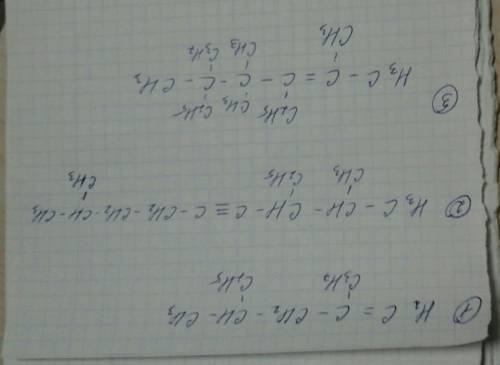 1 H2C = C - CH2 - CH - CH3
C3H7 C2H5
2 H3C - CH - CH - C ≡ C - CH2 - CH2 - CH2 - CH - CH3
CH3 C2H5 CH3
C2H5 CH3 C2H5
3 H3C - C = C - C - C - CH3
CH3 CH3 C3H7